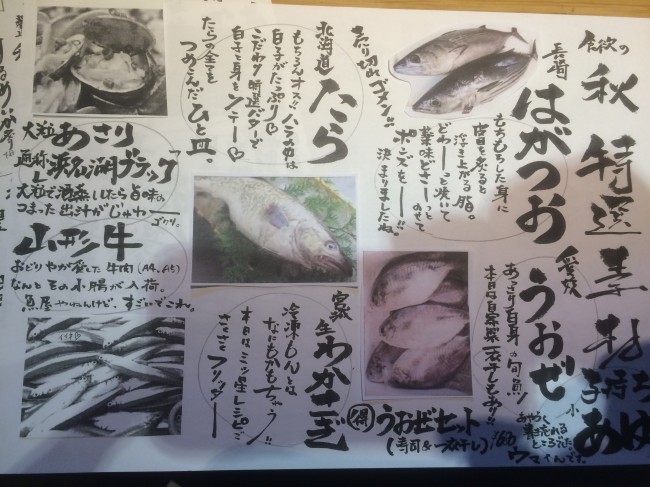 食欲の
秋 特選素材
子持ち
小あゆ
あやうく
書き忘れる
ところでした
ウマイんです。
長崎
はがつお
もちもちした身に
脂目を炙ると
浮き上がる脂。
どわーっと焼いて
薬味どさーっとのせて
ポンズをー!!
決まりましたね。
売り切れゴメン!!
愛媛
うおぜ
あっさり白身の旬魚!
本日は自家製一夜干しもあり!!
得 うおぜセット
(寿司&一夜干し)
北海道
たら
もちろんオス!!ハラの中は
白子がたっぷり♡
こだわり特選バターで
白子と身をソテー♡
たらの全てを
つめこんだひと皿。
生わかさぎ
冷凍もんとは
なにもかもちゃう!!
本日はミツ星レシピで
さくさくフリッター
大粒あさり
通称「浜名湖ブラック」
大粒で酒蒸ししたら旨味の
つまった出汁がじゅわー
ゴクッ。
山形牛
おどりやが愛した牛肉(A4、A5)
なんとその小腸が入荷。
魚屋やねんけど、すごいでこれ。